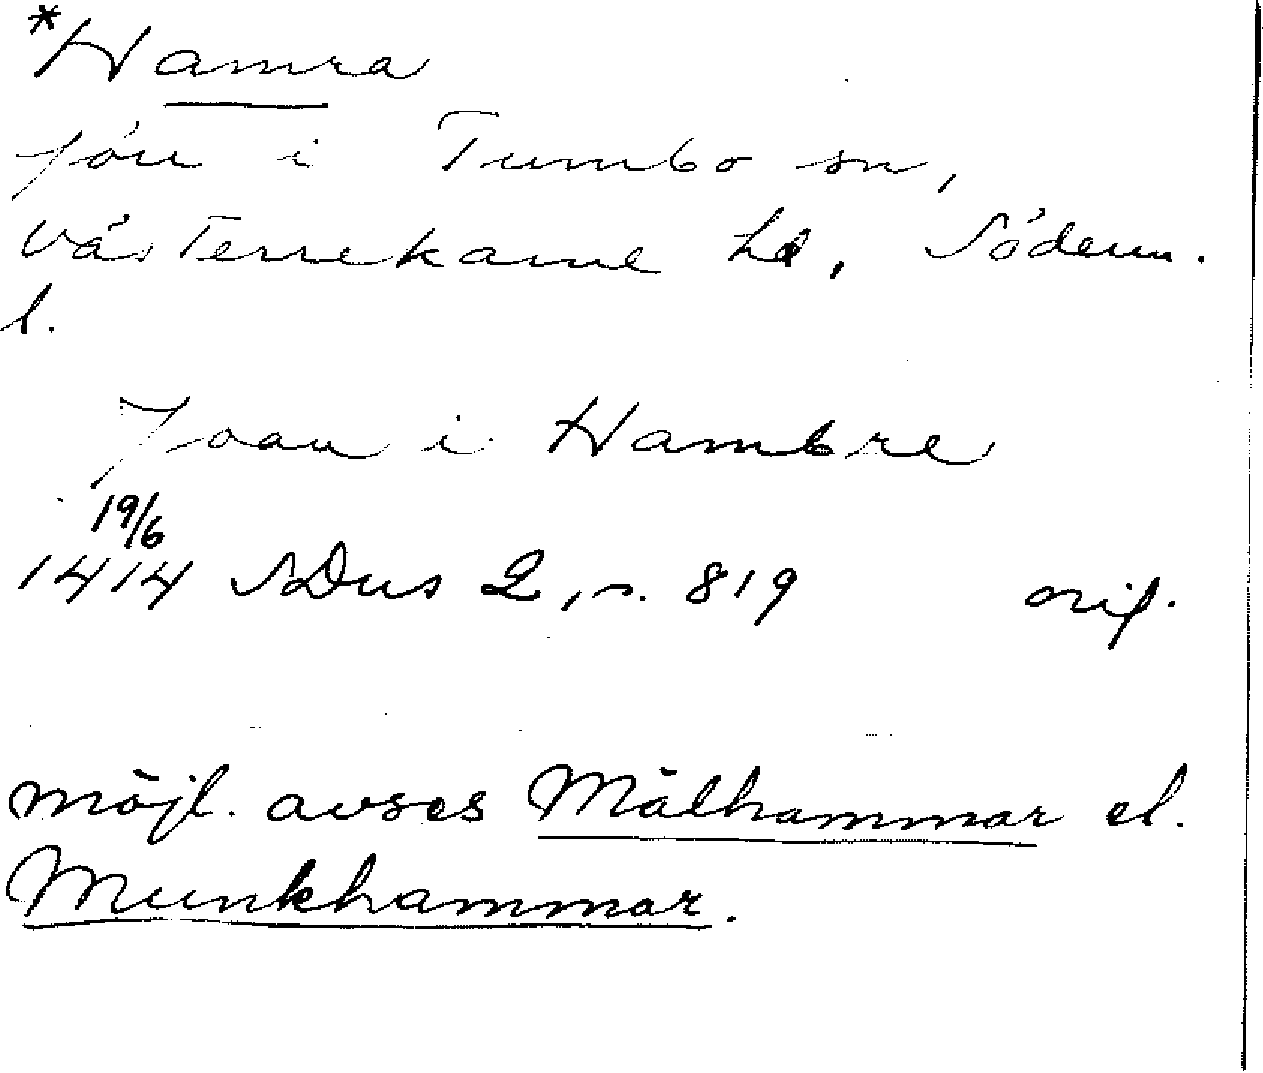 *Hamra
förr i Tumbo sn,
Västerrekarne hd, Söderm.
l.
Joan i Hambre
19/6
1414 SDns 2, s. 819 orig.
möjl. avses Mälhammar el.
Munkhammar.